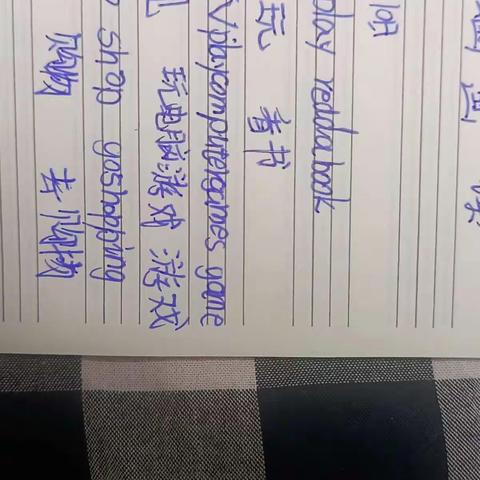 play readabook
玩 看书
playcomputergames game
玩电脑游戏 游戏
shop goshopping
购物 去购物